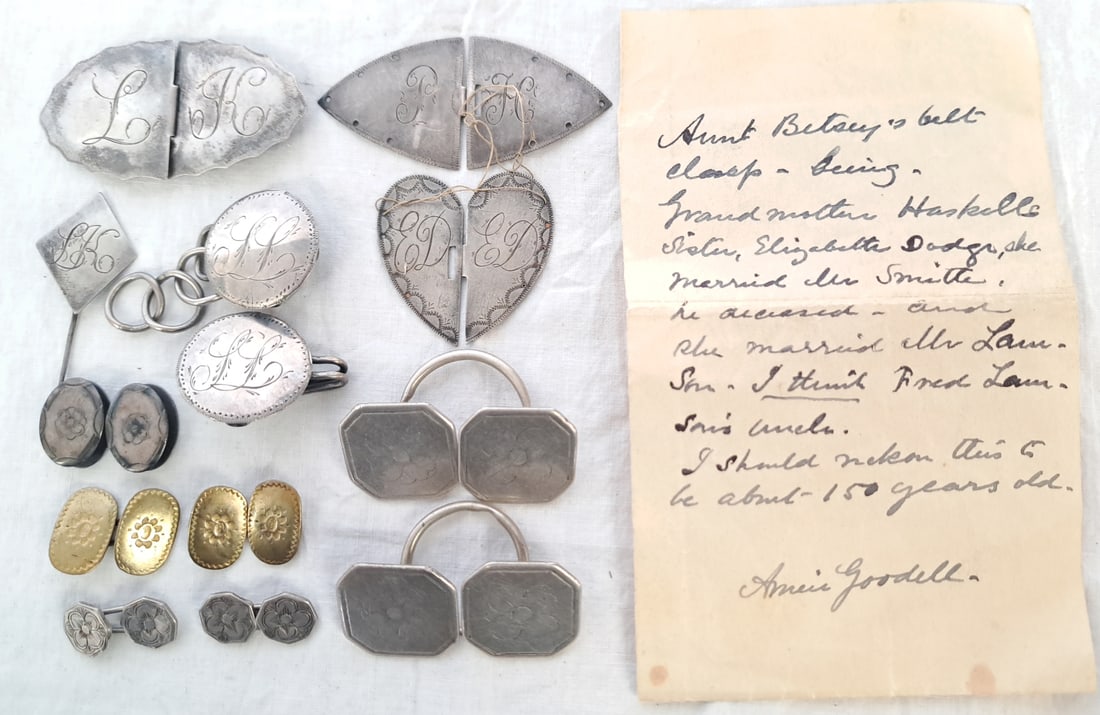 L K
B H
LK
LL
LL
ED ED
Aunt Betsey's belt
clasp - being -
Grandmother Haskells
Sister, Elizabeth Dodge, she
married Mr Smith.
he deceased - and
she married Mr Lam-
son - I think Fred Lam-
son's uncle.
I should reckon this to
be about 150 years old.
Goodell -